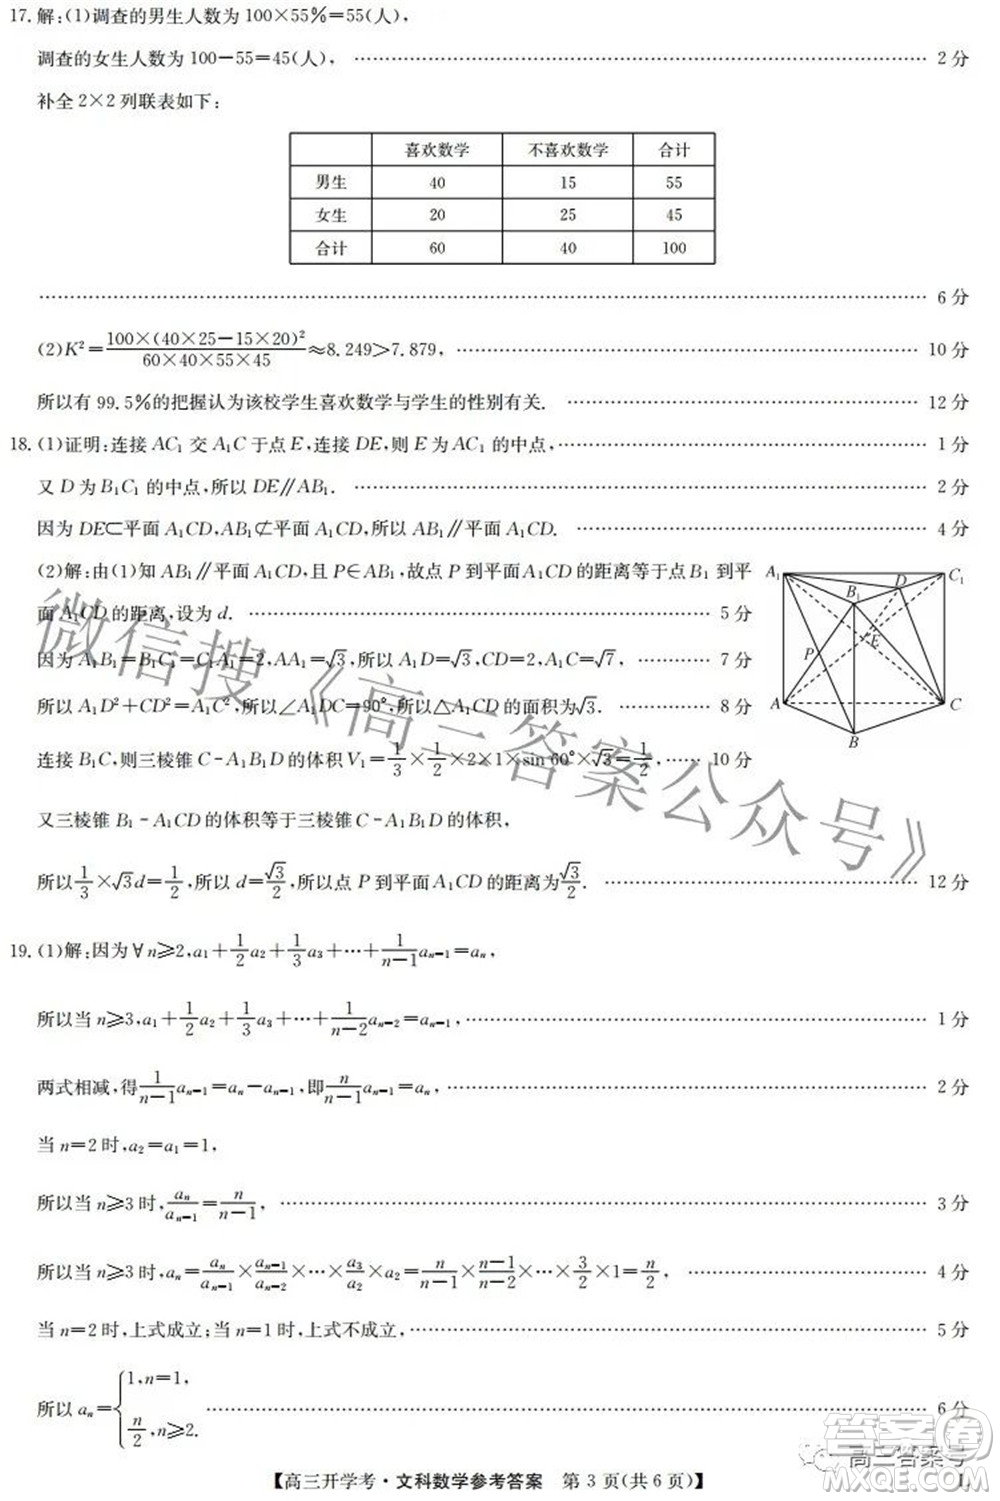 17.解:(1)调查的男生人数为 100×55%=55(人),
调查的女生人数为 100-55=45(人), …… 2 分
补全 2×2 列联表如下:
喜欢数学 不喜欢数学 合计
男生 40 15 55
女生 20 25 45
合计 60 40 100
…… 6 分
(2)K²=\frac{100×(40×25-15×20)²}{60×40×55×45}≈8.249>7.879, …… 10 分
所以有 99.5%的把握认为该校学生喜欢数学与学生的性别有关. …… 12 分
18.(1)证明:连接 AC₁ 交 A₁C 于点 E,连接 DE,则 E 为 AC₁ 的中点, …… 1 分
又 D 为 B₁C₁ 的中点,所以 DE∥AB₁. …… 2 分
因为 DE⊂平面 A₁CD,AB₁⊄平面 A₁CD,所以 AB₁∥平面 A₁CD. …… 4 分
(2)解:由(1)知 AB₁∥平面 A₁CD,且 P∈AB₁,故点 P 到平面 A₁CD 的距离等于点 B₁ 到平
面 A₁CD 的距离,设为 d. …… 5 分
因为 A₁B₁=B₁C₁=C₁A₁=2,AA₁=√3,所以 A₁D=√3,CD=2,A₁C=√7, …… 7 分
所以 A₁D²+CD²=A₁C²,所以∠A₁DC=90°,所以△A₁CD 的面积为√3. …… 8 分
连接 B₁C,则三棱锥 C-A₁B₁D 的体积 V₁=\frac{1}{3}×\frac{1}{2}×2×1×sin 60°×√3=\frac{1}{2}, …… 10 分
又三棱锥 B₁-A₁CD 的体积等于三棱锥 C-A₁B₁D 的体积,
所以\frac{1}{3}×√3d=\frac{1}{2},所以 d=\frac{√3}{2},所以点 P 到平面 A₁CD 的距离为\frac{√3}{2}. …… 12 分
A₁ D C₁
B₁
E
P
A C
B
19.(1)解:因为∀n≥2,a₁+\frac{1}{2}a₂+\frac{1}{3}a₃+…+\frac{1}{n-1}aₙ₋₁=aₙ,
所以当 n≥3,a₁+\frac{1}{2}a₂+\frac{1}{3}a₃+…+\frac{1}{n-2}aₙ₋₂=aₙ₋₁, …… 1 分
两式相减,得\frac{1}{n-1}aₙ₋₁=aₙ-aₙ₋₁,即\frac{n}{n-1}aₙ₋₁=aₙ, …… 2 分
当 n=2 时,a₂=a₁=1,
所以当 n≥3 时,\frac{aₙ}{aₙ₋₁}=\frac{n}{n-1}, …… 3 分
所以当 n≥3 时,aₙ=\frac{aₙ}{aₙ₋₁}×\frac{aₙ₋₁}{aₙ₋₂}×…×\frac{a₃}{a₂}×a₂=\frac{n}{n-1}×\frac{n-1}{n-2}×…×\frac{3}{2}×1=\frac{n}{2}, …… 4 分
当 n=2 时,上式成立;当 n=1 时,上式不成立, …… 5 分
所以 aₙ={1,n=1,
\frac{n}{2},n≥2. …… 6 分
【高三开学考·文科数学参考答案 第 3 页(共 6 页)】
微信搜《高三答案公众号》
高三答案号
答案圈
MXQE.COM